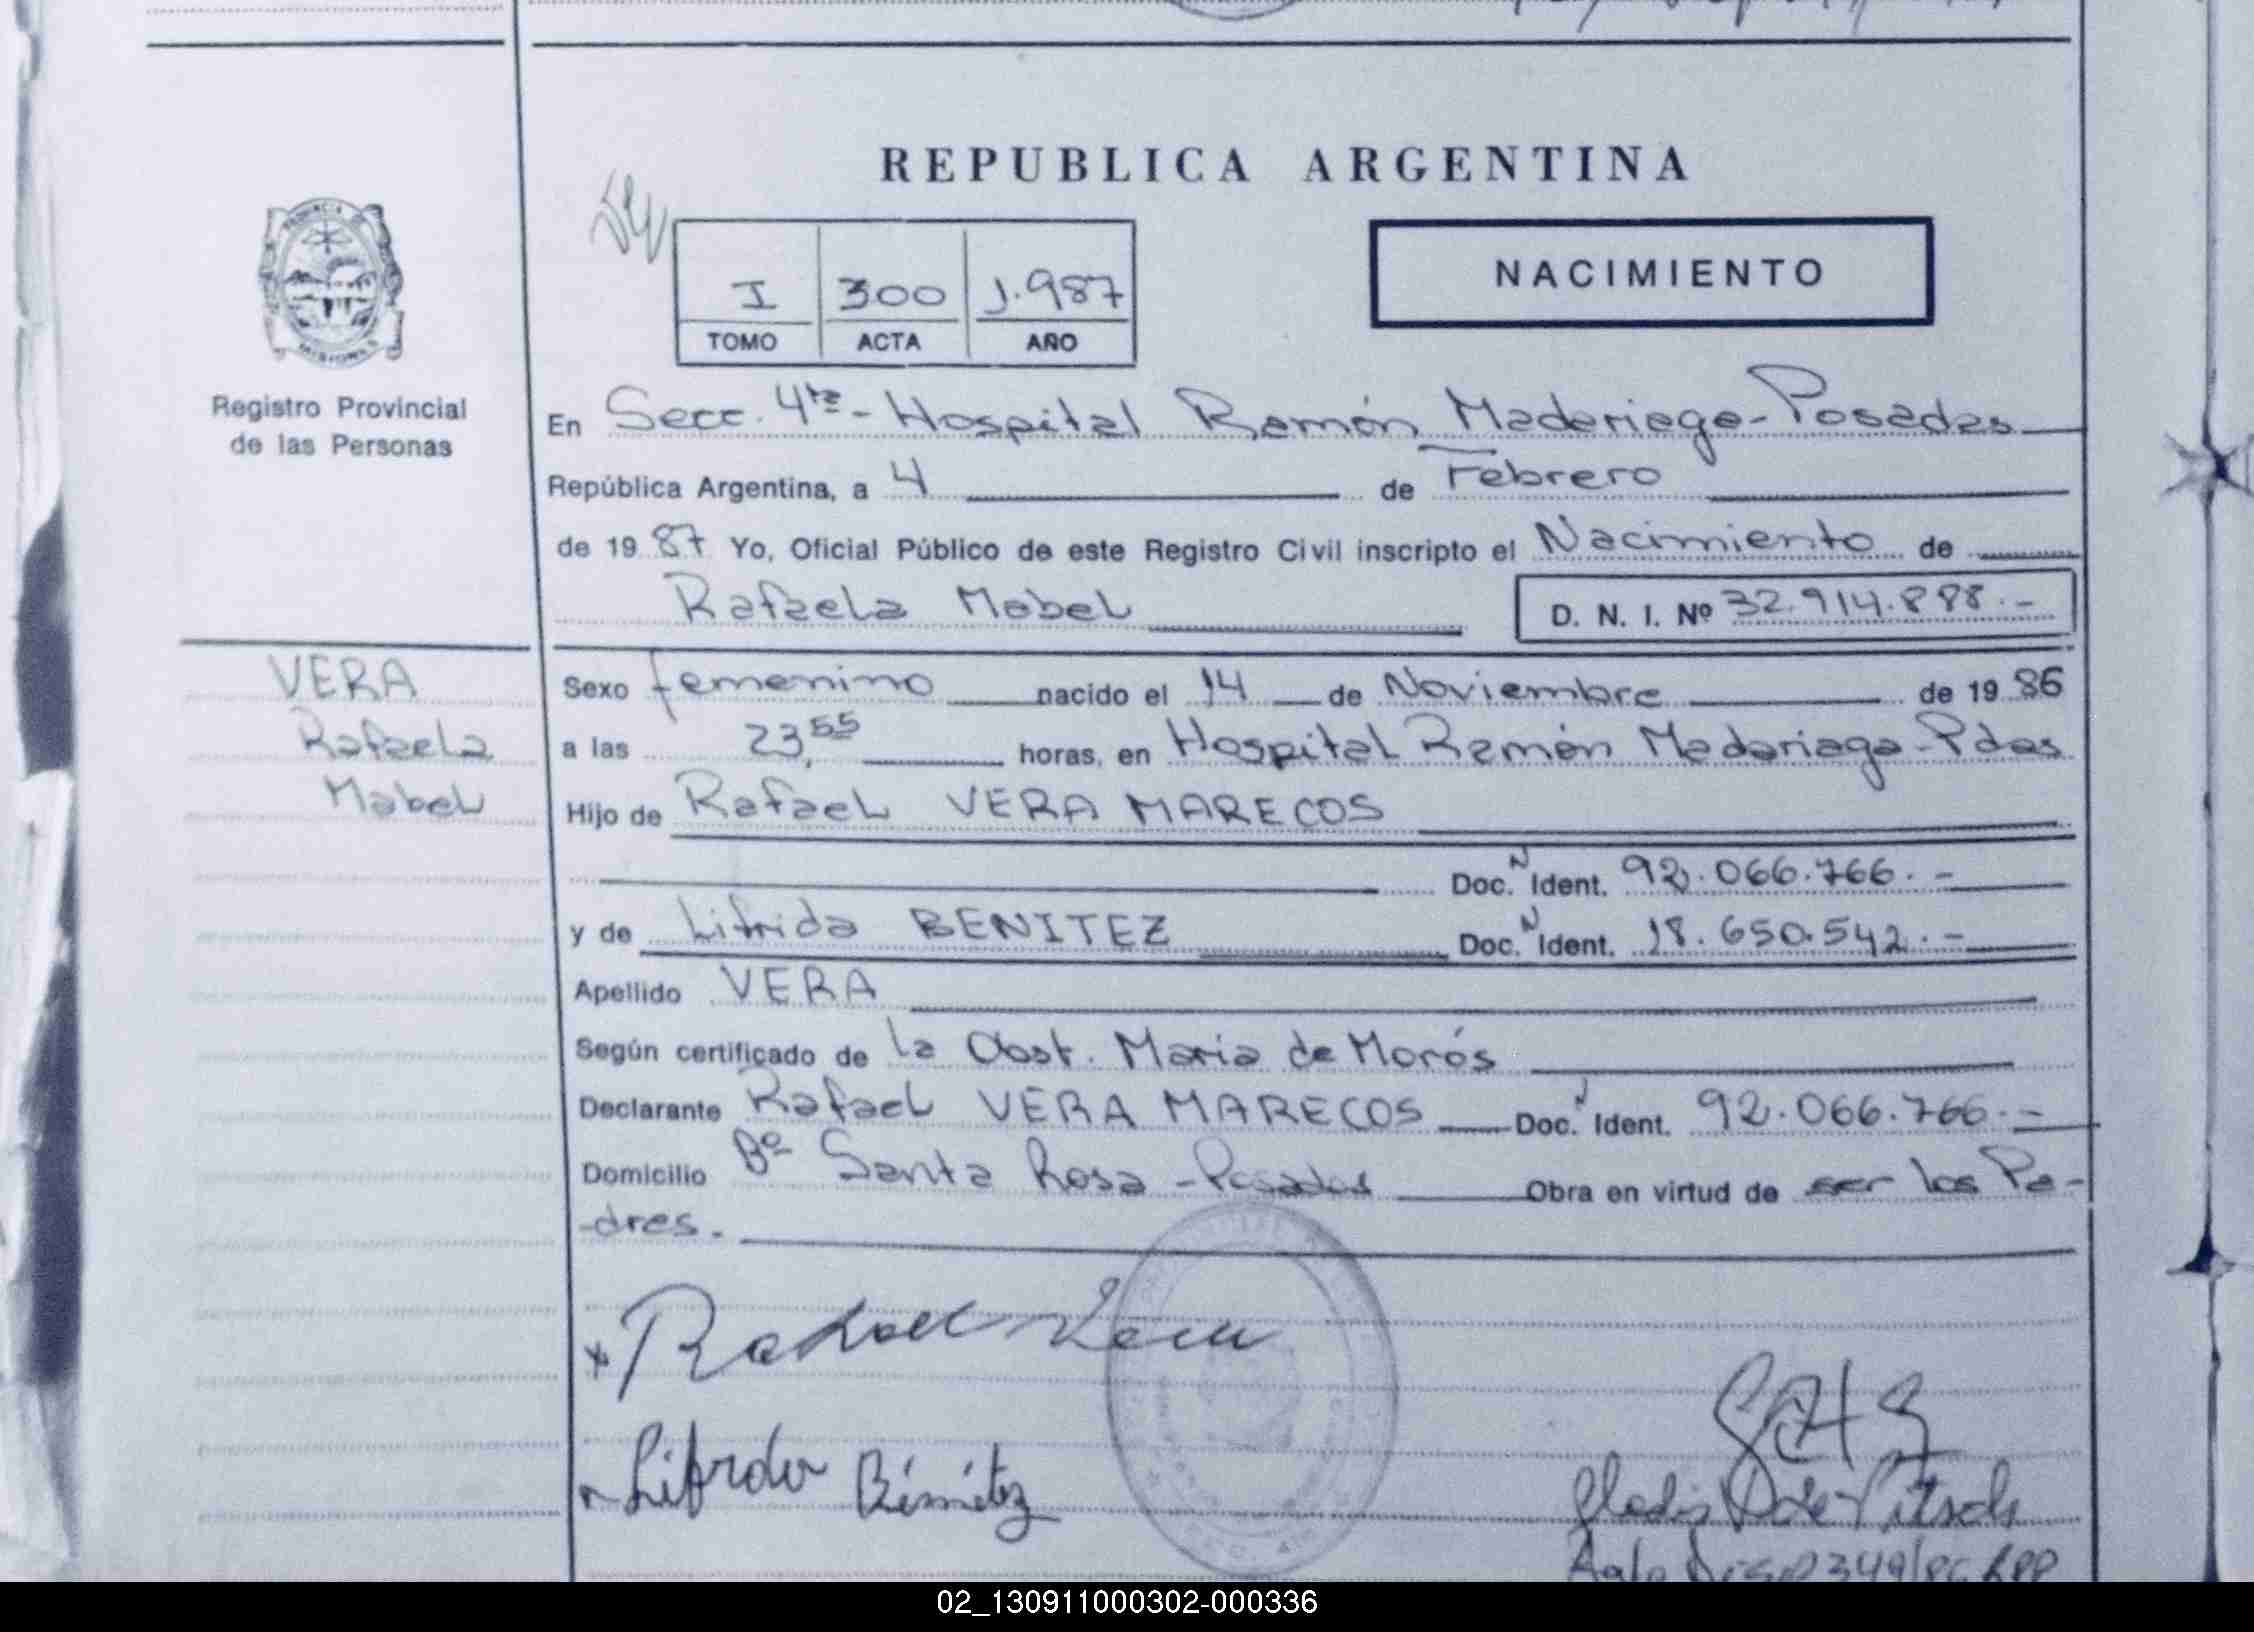 REPUBLICA ARGENTINA
NACIMIENTO
I 300 1.987
TOMO ACTA AÑO
Registro Provincial
de las Personas
En Secc. 4ta - Hospital Ramón Madariaga - Posadas
República Argentina, a 4 de Febrero
de 19 87 Yo, Oficial Público de este Registro Civil inscripto el Nacimiento de
Rafaela Mabel D. N. I. Nº 32.914.888.-
VERA
Rafaela
Mabel
Sexo femenino nacido el 14 de Noviembre de 19 86
a las 23,55 horas, en Hospital Ramón Madariaga - Pdas
Hijo de Rafael VERA MARECOS
Doc. N Ident. 92.066.766.-
y de Lifrida BENITEZ Doc. N Ident. 18.650.542.-
Apellido VERA
Según certificado de la Obst. Maria de Morós
Declarante Rafael VERA MARECOS Doc. N Ident. 92.066.766.-
Domicilio Bº Santa Rosa - Posadas Obra en virtud de ser los Pa-
-dres.-
Rafael Vera
Lifrda Bénítez
02_130911000302-000336